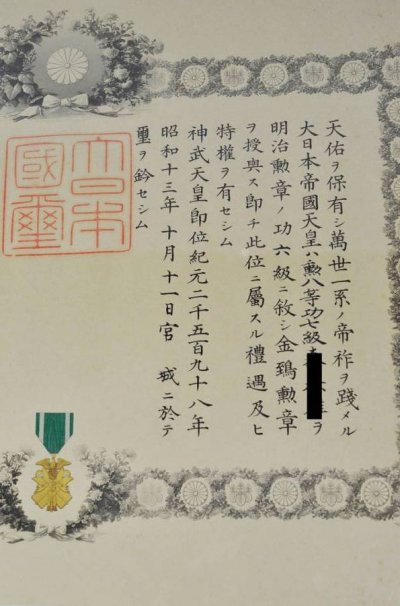 天佑ヲ保有シ萬世一系ノ帝祚ヲ踐メル
大日本帝國天皇ハ勲八等功七級ヲ
明治勲章ノ功六級ニ敘シ金鵄勲章
ヲ授與ス卽チ此位ニ屬スル禮遇及ヒ
特權ヲ有セシム
神武天皇卽位紀元二千五百九十八年
昭和十三年十月十一日宮城ニ於テ
璽ヲ鈐セシム
大日本
國璽